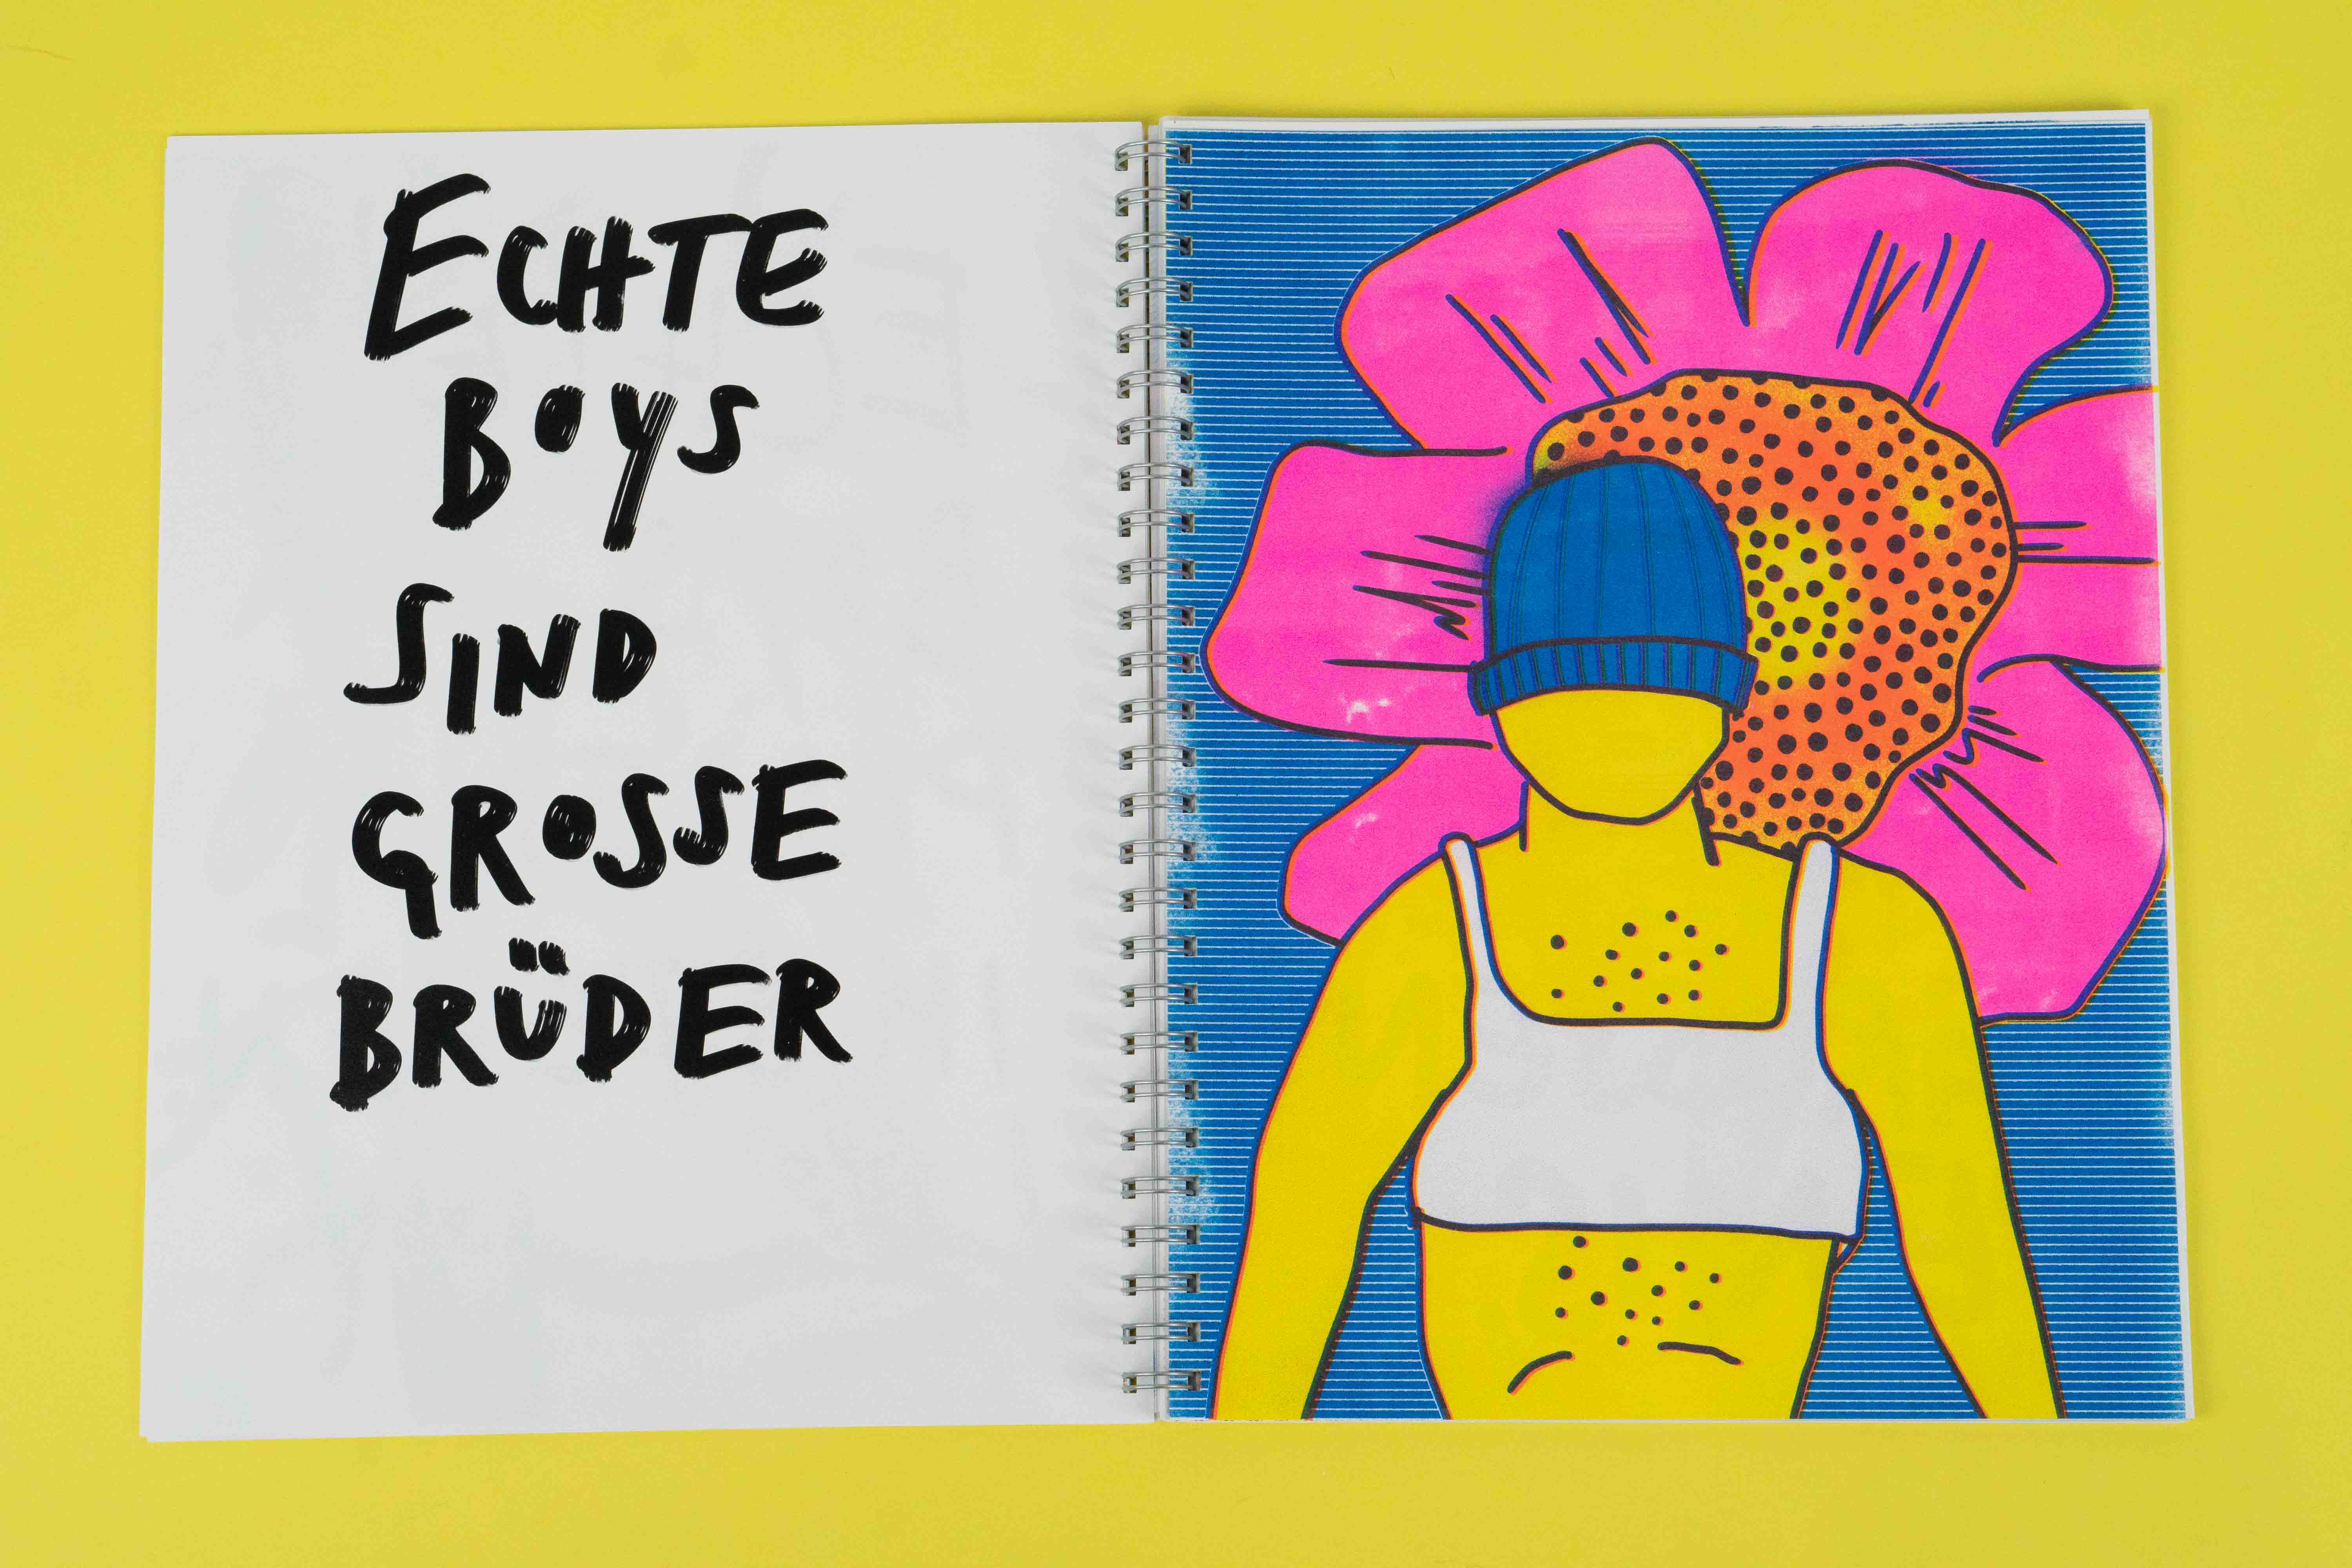 ECHTE
BOYS
SIND
GROSSE
BRÜDER